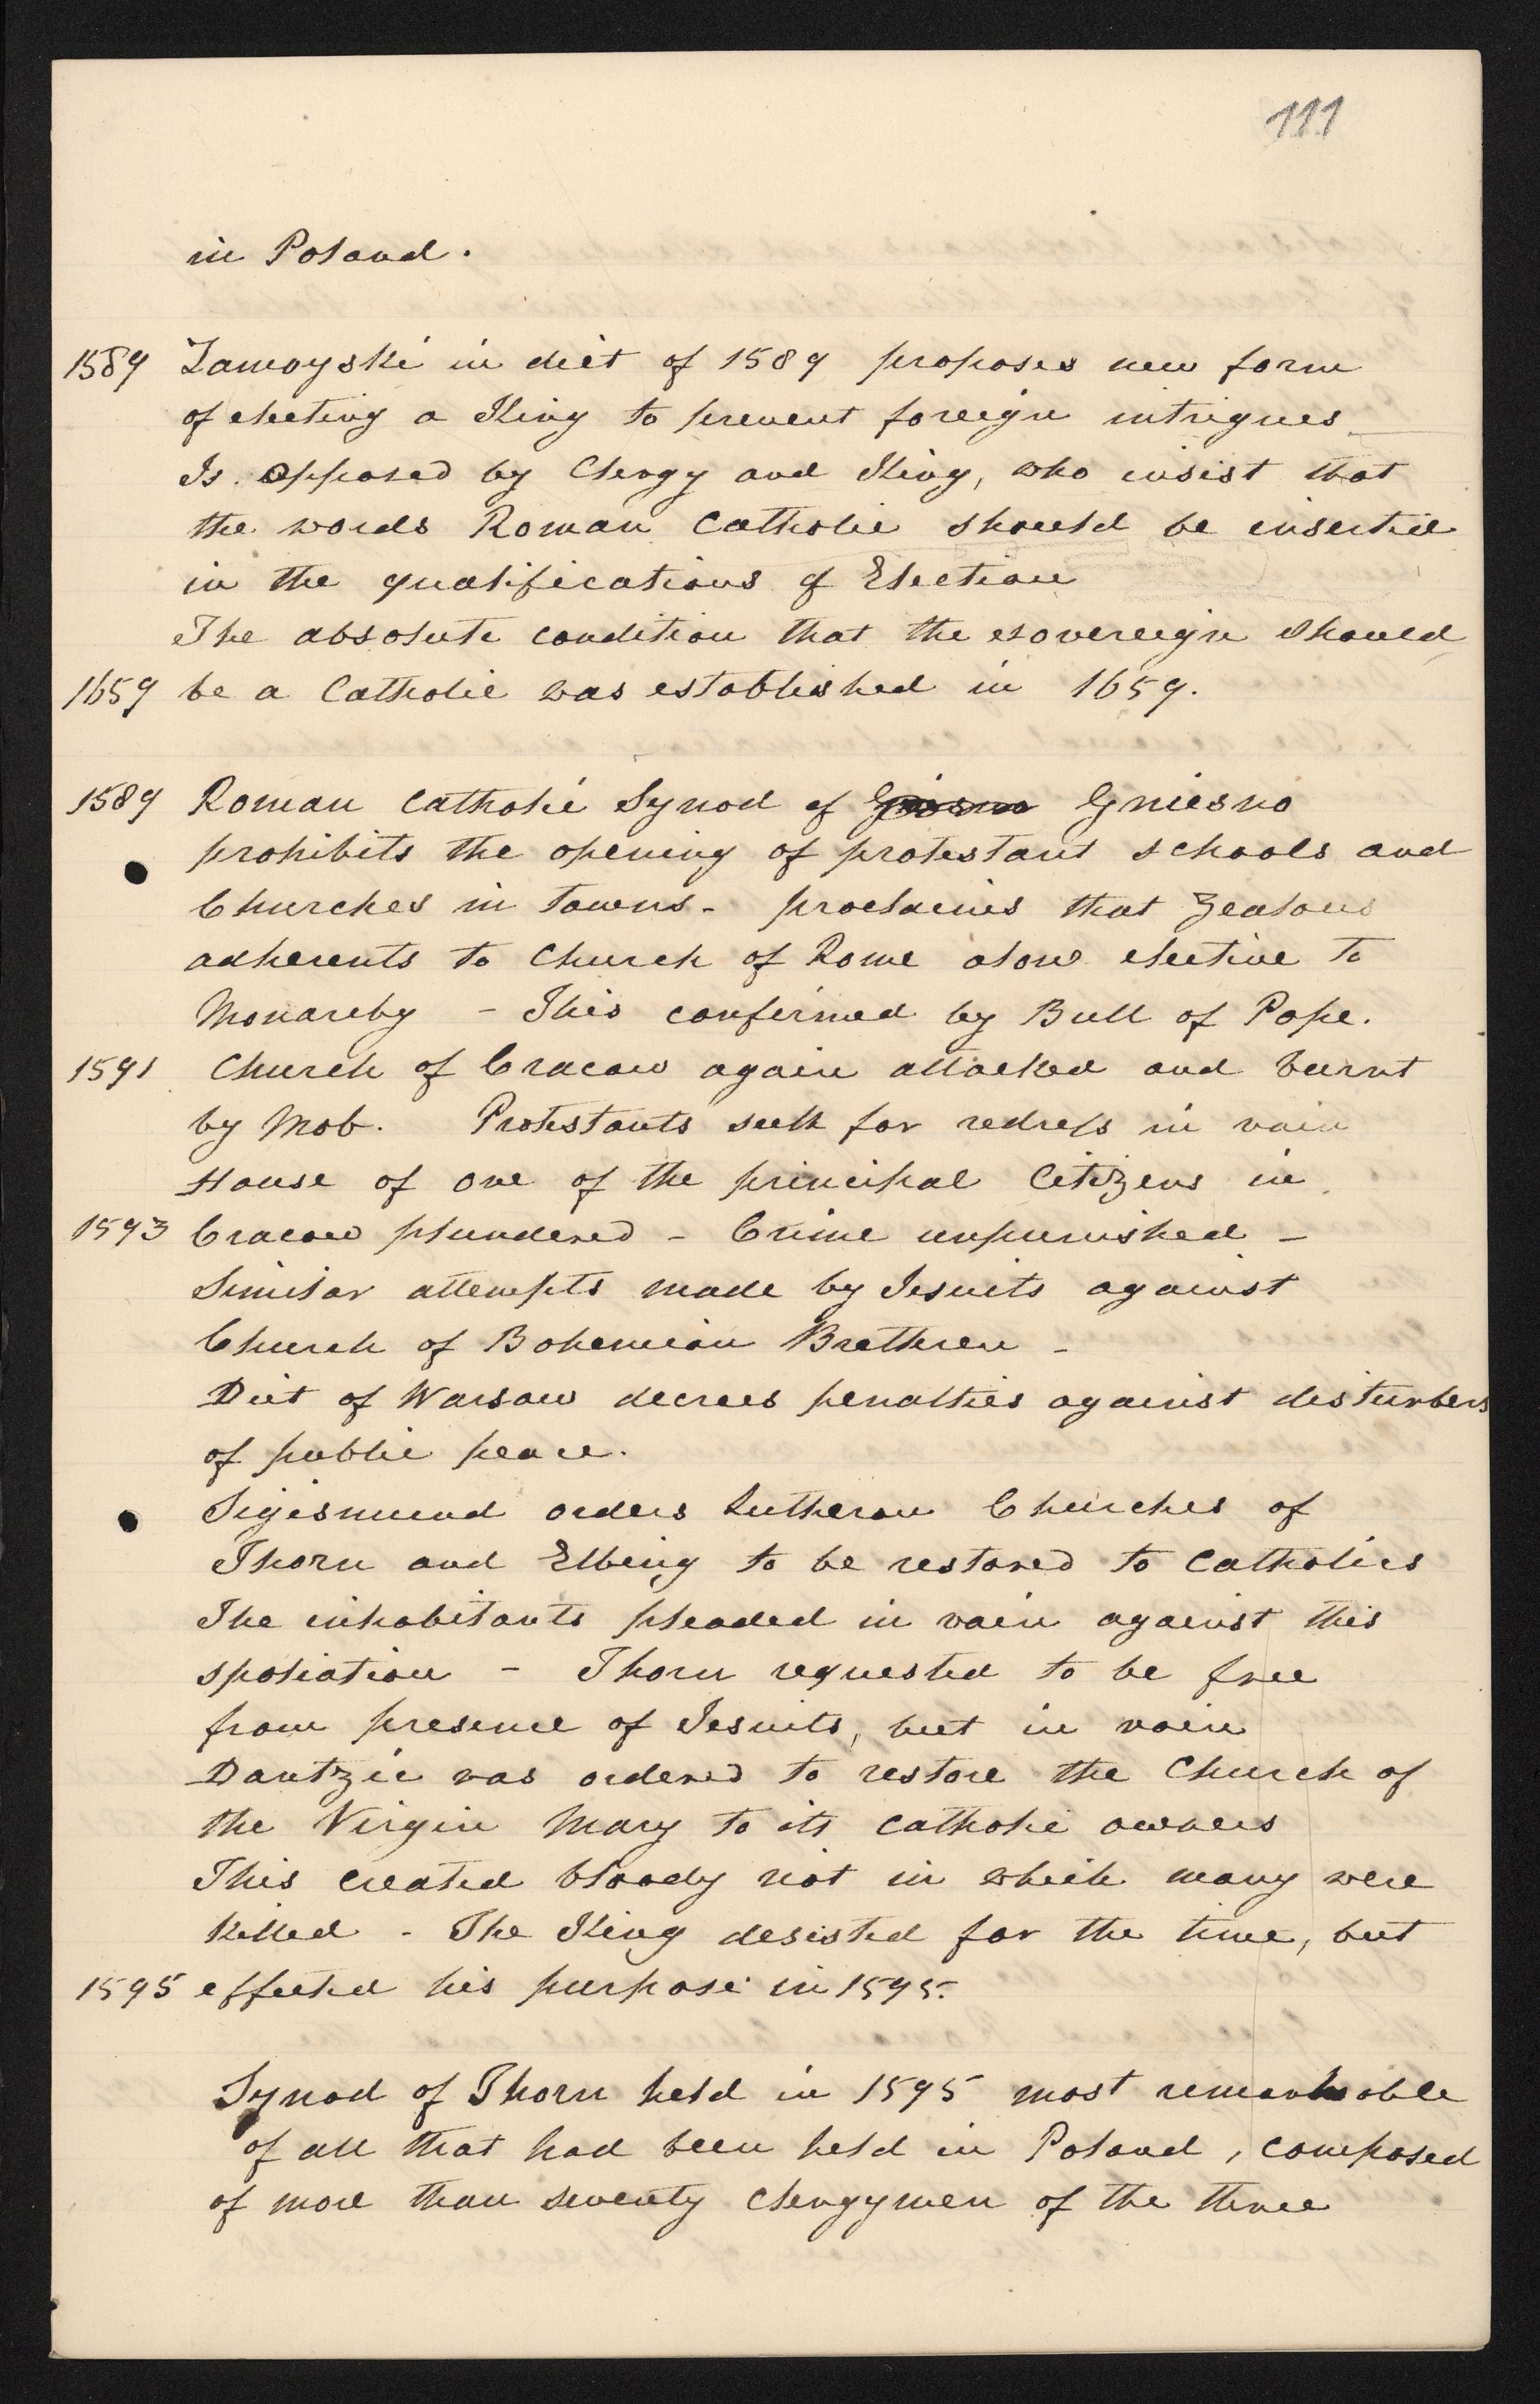 111
in Poland.
1589 Zamoyski in diet of 1589 proposes new form
of electing a King to prevent foreign intrigues
Is opposed by Clergy and King, who insist that
the words Roman Catholic should be inserted
in the qualifications of Election
The absolute condition that the sovereign should
1659 be a Catholic was established in 1659.
1589 Roman Catholic Synod of Gniesno
prohibits the opening of protestant schools and
Churches in towns - proclaims that Zealous
adherents to Church of Rome alone elective to
Monarchy - This confirmed by Bull of Pope.
1591 Church of Cracow again attacked and burnt
by Mob. Protestants seek for redress in vain
House of one of the principal Citizens in
1593 Cracow plundered - Crime unpunished -
Similar attempts made by Jesuits against
Church of Bohemian Brethren -
Diet of Warsaw decrees penalties against disturbers
of public peace.
Sigismund orders Lutheran Churches of
Thorn and Elbing to be restored to Catholics
The inhabitants pleaded in vain against this
spoliation - Thorn requested to be free
from presence of Jesuits, but in vain
Dantzic was ordered to restore the Church of
the Virgin Mary to its Catholic owners
This created bloody riot in which many were
killed - The King desisted for the time, but
1595 effected his purpose in 1595.
Synod of Thorn held in 1595 most remarkable
of all that had been held in Poland, composed
of more than seventy Clergymen of the three